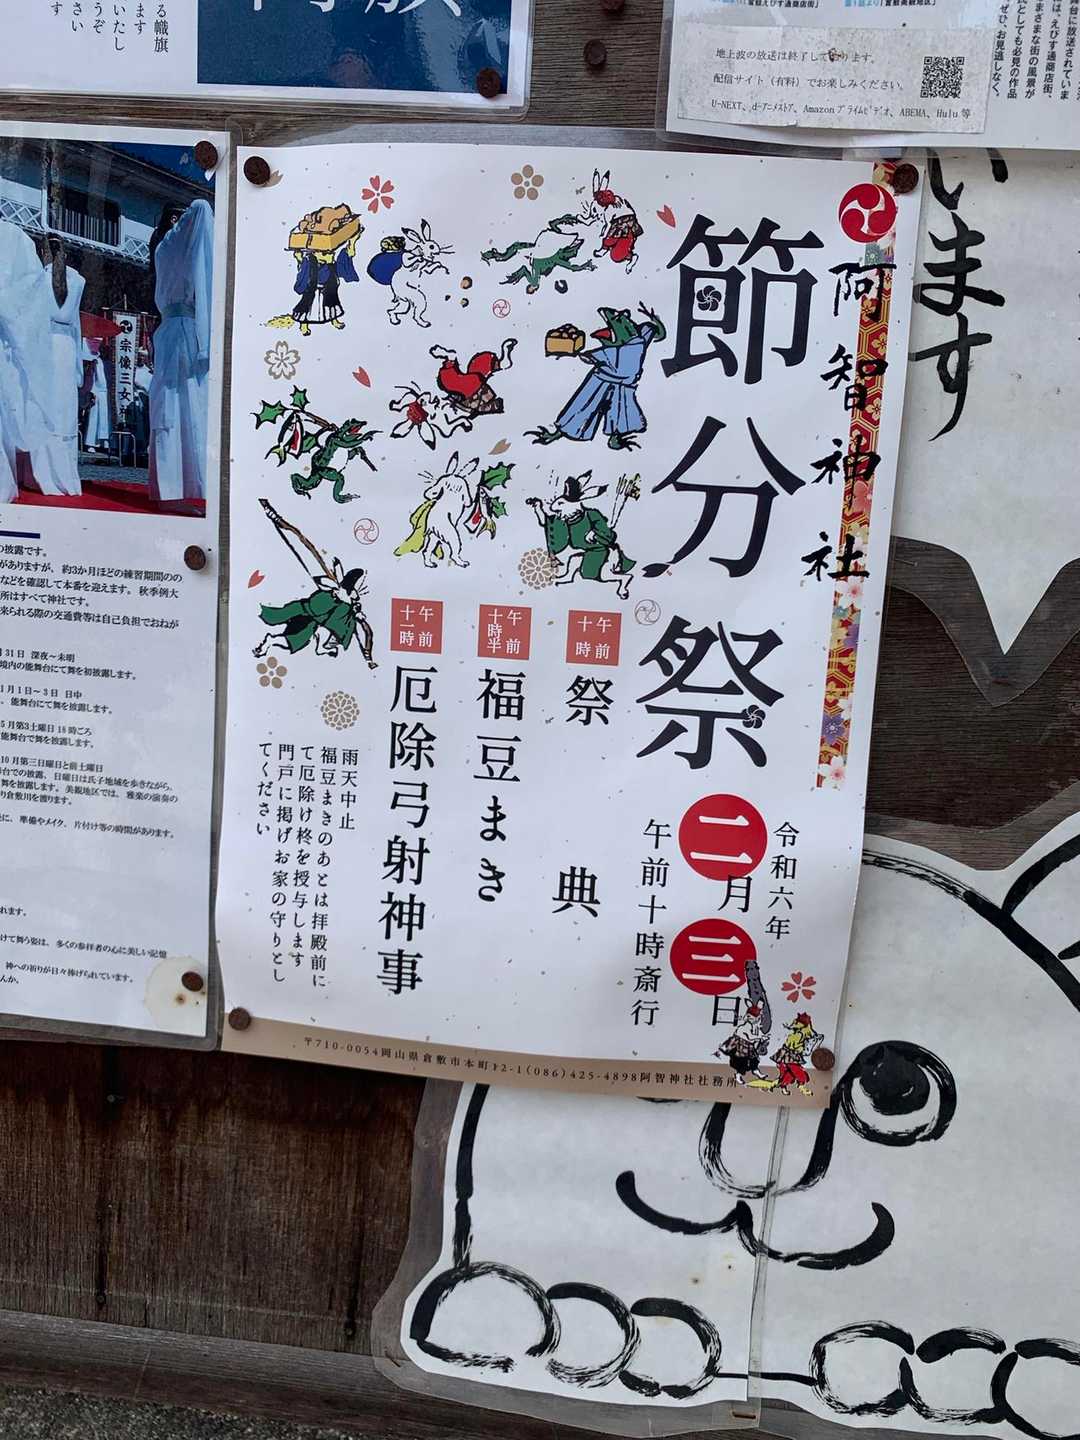 る幟旗
ます
いたし
うぞ
さい
地上波の放送は終了しております。
配信サイト（有料）でお楽しみください。
U-NEXT、d-アニメストア、Amazonプライムビデオ、ABEMA、Hulu等
舞台に放送されていま
、えびす通商店街、
ざまな街の風景が
民としても必見の作品
ぜひ、お見逃しなく。
います
宗像三女神
阿智神社
節分祭
令和六年
二月三日
午前十時斎行
午前十時
祭典
午前十時半
福豆まき
午前十一時
厄除弓射神事
雨天中止
福豆まきのあとは拝殿前に
て厄除け柊を授与します
門戸に掲げお家の守りとし
てください
〒710-0054岡山県倉敷市本町12-1(086)425-4898阿智神社社務所
の披露です。
がありますが、約3か月ほどの練習期間のの
などを確認して本番を迎えます。秋季例大
所はすべて神社です。
来られる際の交通費等は自己負担でおねが
月31日 深夜～未明
境内の能舞台にて舞を初披露します。
1月1日～3日 日中
、能舞台にて舞を披露します。
5月第3土曜日 18時ごろ
能舞台で舞を披露します。
10月第三日曜日と前土曜日
舞台での披露、日曜日は氏子地域を歩きながら、
舞を披露します。美観地区では、雅楽の演奏の
り倉敷川を渡ります。
に、準備やメイク、片付け等の時間があります。
れます。
けて舞う姿は、多くの参拝者の心に美しい記憶
神への祈りが日々捧げられています。
んか。